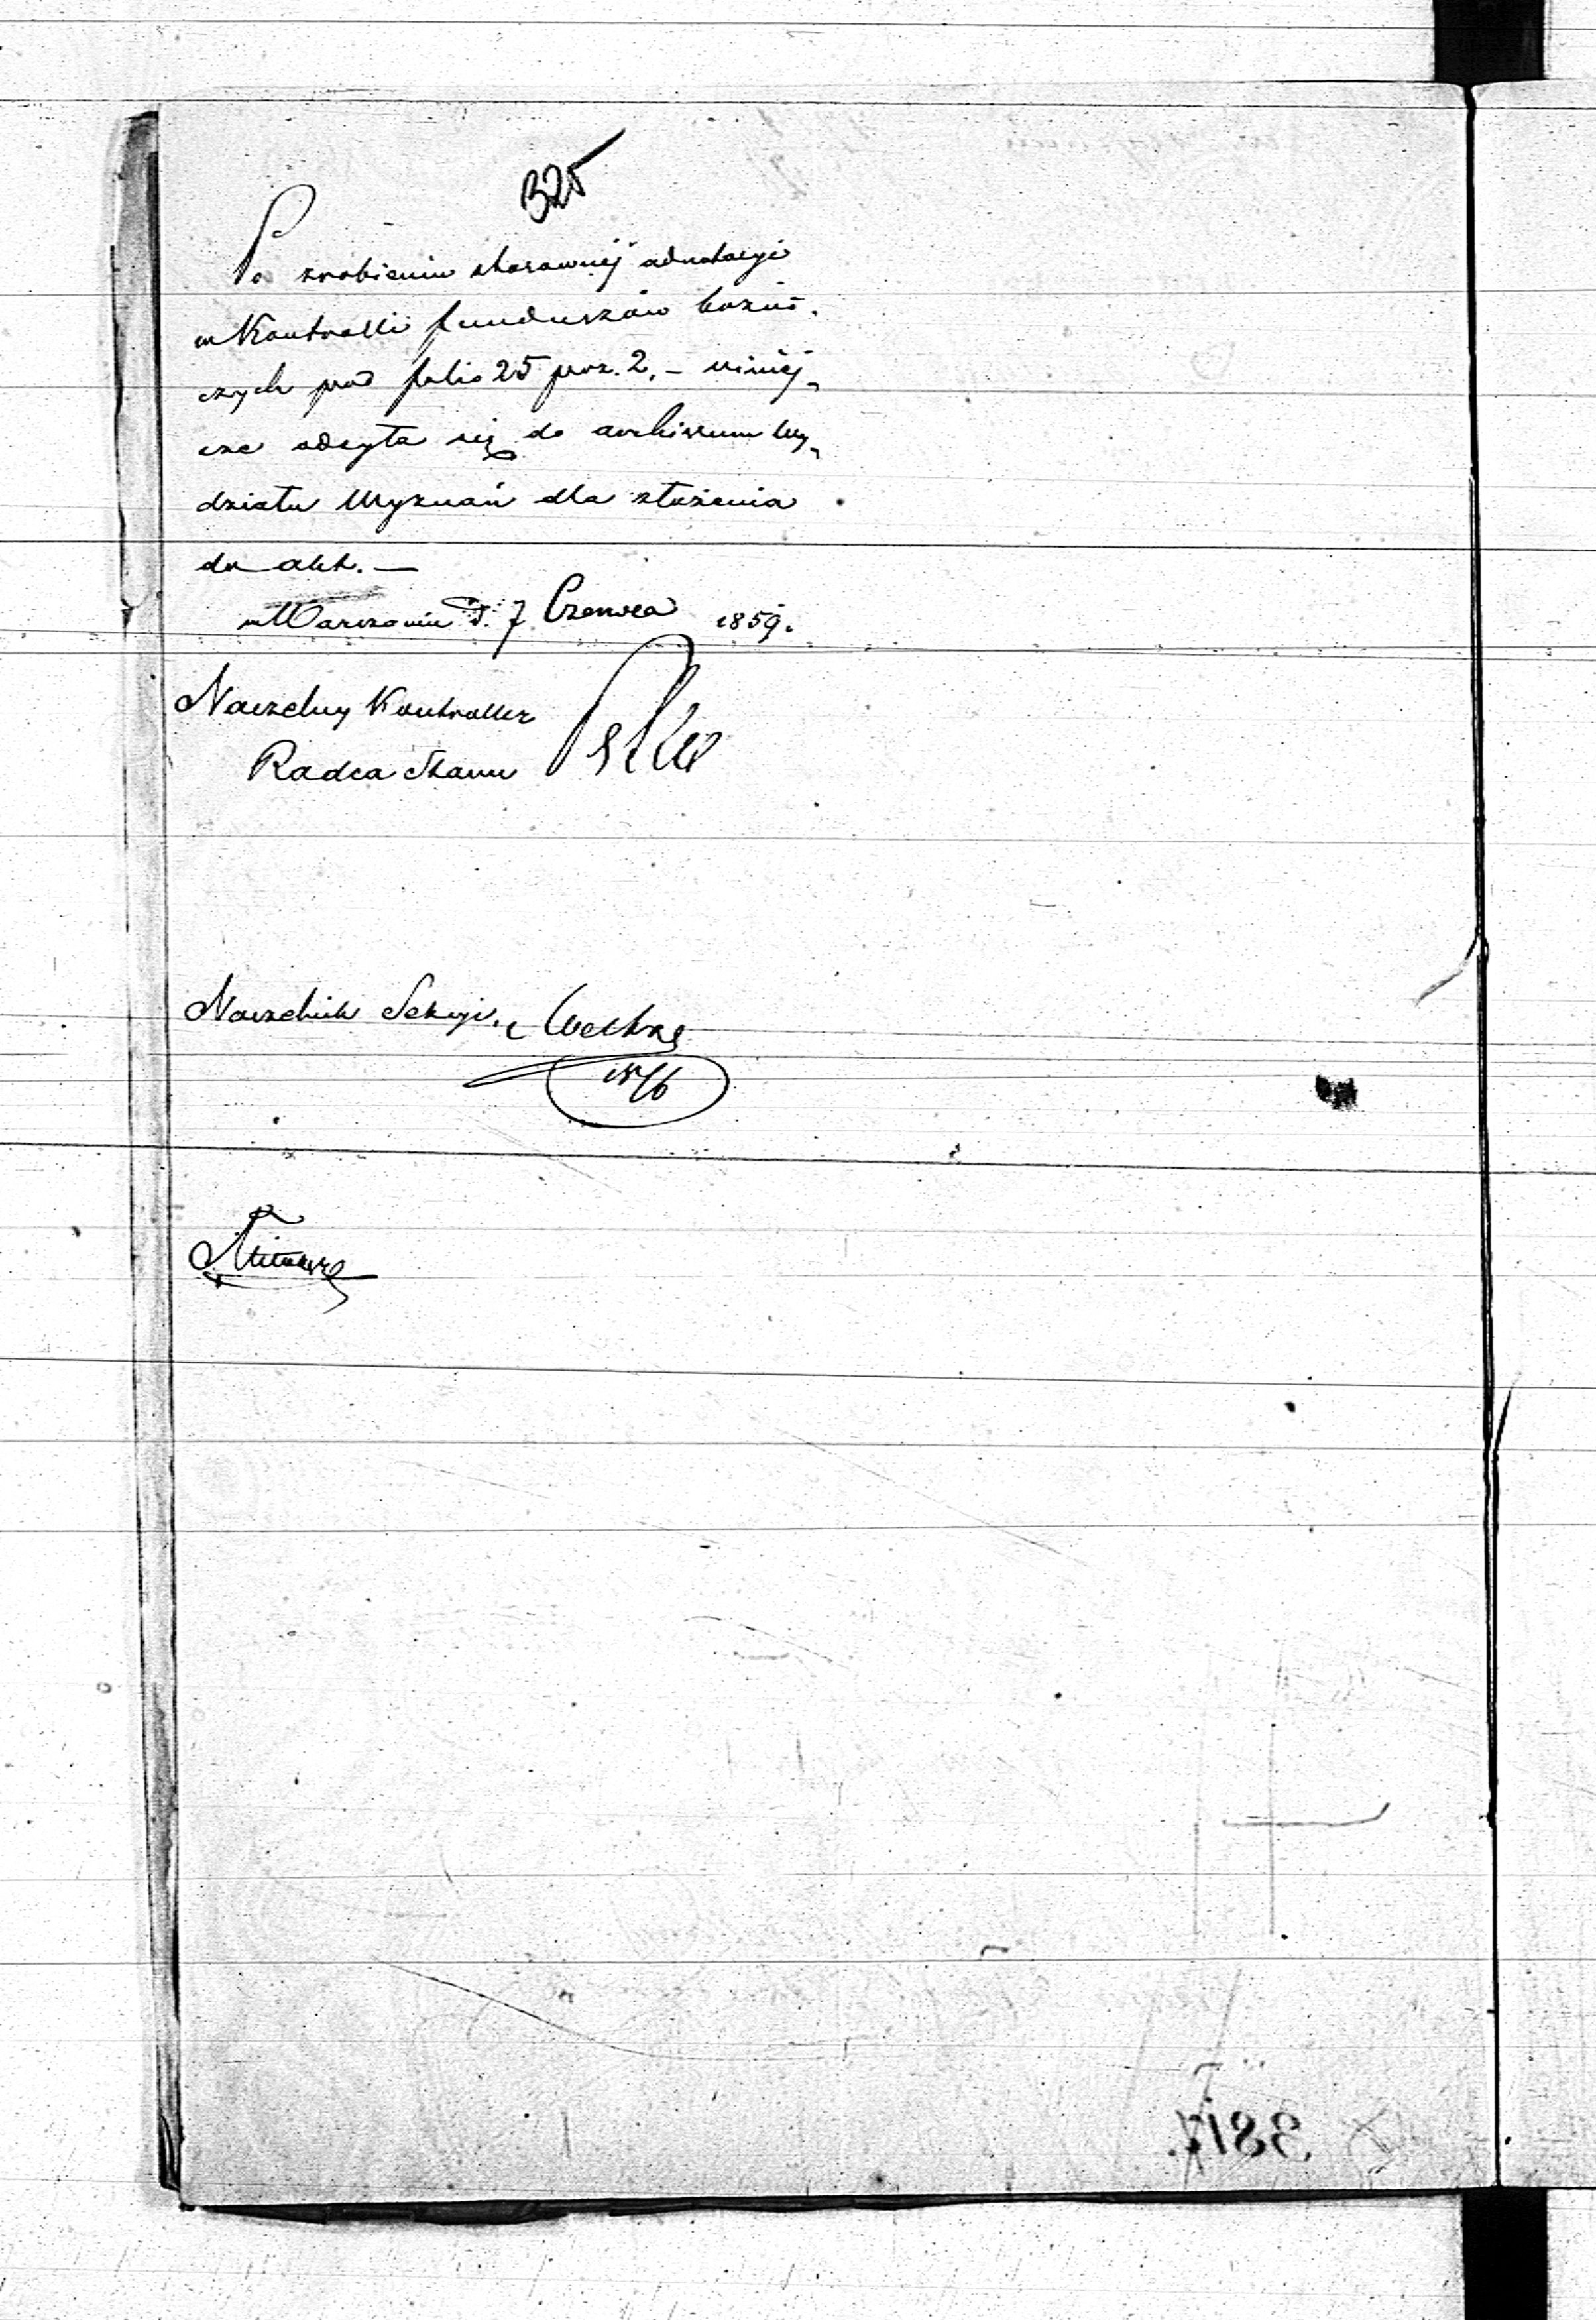 325
Po zrobieniu stosownéj adnotacyi
w Kontrolli funduszów bożni-
czych pod folio 25 poz. 2, – niniéj-
sze odsyła się do archiwum Wy-
działu Wyznań dla złożenia
do akt. —
w Warszawie d. 7 Czerwca 1859.
Naczelny Kontroller
Radca Stanu
Naczelnik Sekcyi
3817.